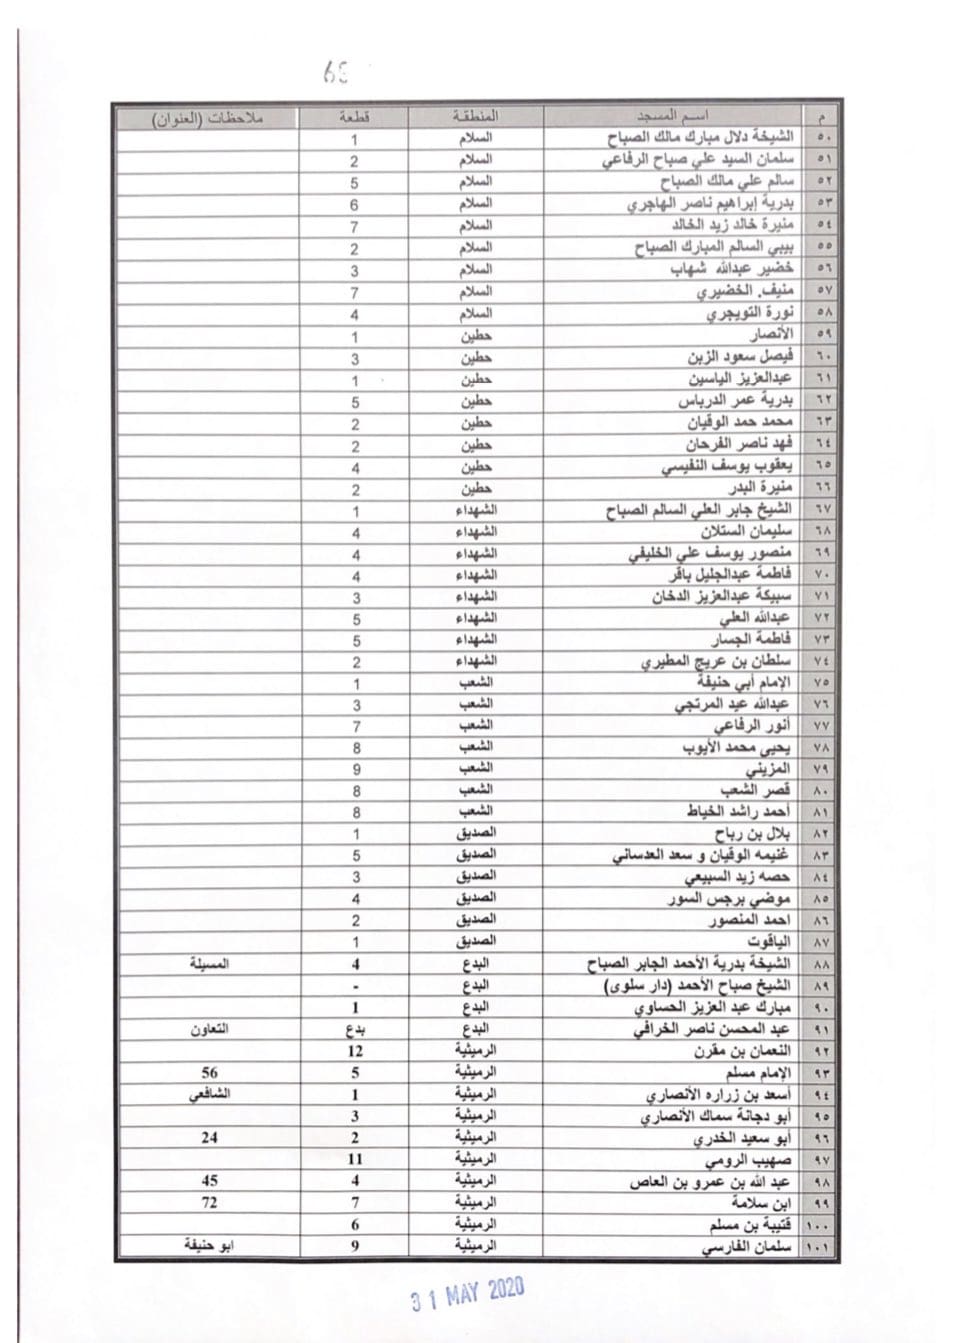 69
م اسم المسجد المنطقة قطعة ملاحظات (العنوان)
٥٠ الشيخة دلال مبارك مالك الصباح السلام 1
٥١ سلمان السيد علي صباح الرفاعي السلام 2
٥٢ سالم علي مالك الصباح السلام 5
٥٣ بدرية إبراهيم ناصر الهاجري السلام 6
٥٤ منيرة خالد زيد الخالد السلام 7
٥٥ بيبي السالم المبارك الصباح السلام 2
٥٦ خضير عبدالله شهاب السلام 3
٥٧ منيف. الخضيري السلام 7
٥٨ نورة التويجري السلام 4
٥٩ الأنصار حطين 1
٦٠ فيصل سعود الزبن حطين 3
٦١ عبدالعزيز الياسين حطين 1
٦٢ بدرية عمر الدرباس حطين 5
٦٣ محمد حمد الوقيان حطين 2
٦٤ فهد ناصر الفرحان حطين 2
٦٥ يعقوب يوسف النفيسي حطين 4
٦٦ منيرة البدر حطين 2
٦٧ الشيخ جابر العلي السالم الصباح الشهداء 1
٦٨ سليمان الستلان الشهداء 4
٦٩ منصور يوسف علي الخليفي الشهداء 4
٧٠ فاطمة عبدالجليل باقر الشهداء 4
٧١ سبيكة عبدالعزيز الدخان الشهداء 3
٧٢ عبدالله العلي الشهداء 5
٧٣ فاطمة الجسار الشهداء 5
٧٤ سلطان بن عريج المطيري الشهداء 2
٧٥ الإمام أبي حنيفة الشعب 1
٧٦ عبدالله عيد المرتجي الشعب 3
٧٧ أنور الرفاعي الشعب 7
٧٨ يحيى محمد الأيوب الشعب 8
٧٩ المزيني الشعب 9
٨٠ قصر الشعب الشعب 8
٨١ أحمد راشد الخياط الشعب 8
٨٢ بلال بن رباح الصديق 1
٨٣ غنيمه الوقيان و سعد العدساني الصديق 5
٨٤ حصه زيد السبيعي الصديق 3
٨٥ موضي برجس السور الصديق 4
٨٦ احمد المنصور الصديق 2
٨٧ الياقوت الصديق 1
٨٨ الشيخة بدرية الأحمد الجابر الصباح البدع 4 المسيلة
٨٩ الشيخ صباح الأحمد (دار سلوى) البدع -
٩٠ مبارك عبد العزيز الحساوي البدع 1
٩١ عبد المحسن ناصر الخرافي البدع بدع التعاون
٩٢ النعمان بن مقرن الرميثية 12
٩٣ الإمام مسلم الرميثية 5 56
٩٤ أسعد بن زراره الأنصاري الرميثية 1 الشافعي
٩٥ أبو دجانة سماك الأنصاري الرميثية 3
٩٦ أبو سعيد الخدري الرميثية 2 24
٩٧ صهيب الرومي الرميثية 11
٩٨ عبد الله بن عمرو بن العاص الرميثية 4 45
٩٩ ابن سلامة الرميثية 7 72
١٠٠ قتيبة بن مسلم الرميثية 6
١٠١ سلمان الفارسي الرميثية 9 ابو حنيفة
31 MAY 2020